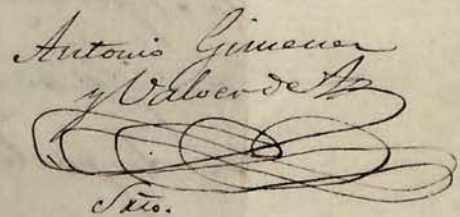 Antonio Gimenez
y Valver de